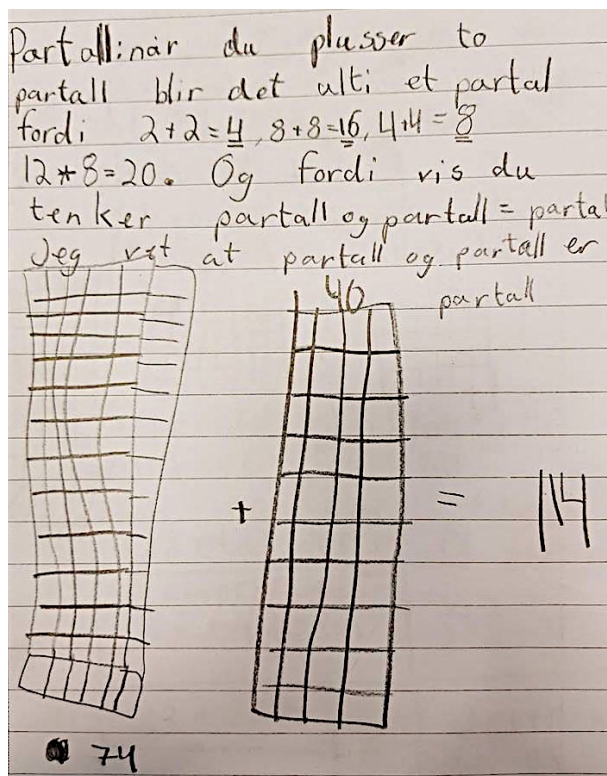 Partall: når du plusser to
partall blir det ulti et partal
fordi 2+2=4, 8+8=16, 4+4=8
12+8=20. Og fordi vis du
tenker partall og partall = partal
Jeg vet at partall og partall er
partall
40
+ = 114
74